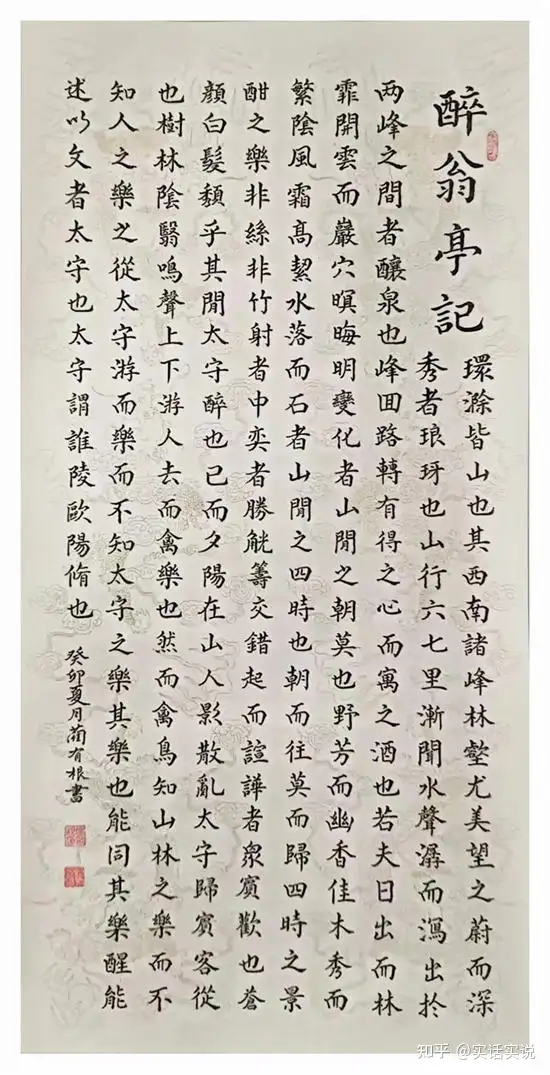 醉翁亭記
環滁皆山也其西南諸峰林壑尤美望之蔚而深
秀者琅玡也山行六七里漸聞水聲潺而瀉出於
两峰之間者釀泉也峰回路轉有得之心而寓之酒也若夫日出而林
霏開雲而巖穴暝晦明變化者山閒之朝莫也野芳而幽香佳木秀而
繁陰風霜髙絜水落而石者山閒之四時也朝而往莫而歸四時之景
酣之樂非絲非竹射者中奕者勝觥籌交錯起而諠譁者衆賓歡也蒼
顔白髮頹乎其閒太守醉也已而夕陽在山人影散亂太守歸賓客從
也樹林陰翳鳴聲上下游人去而禽樂也然而禽鳥知山林之樂而不
知人之樂之從太守游而樂而不知太守之樂其樂也能同其樂醒能
述以文者太守也太守謂誰陵歐陽脩也
癸卯夏月蔺有根書
知乎 @实话实说